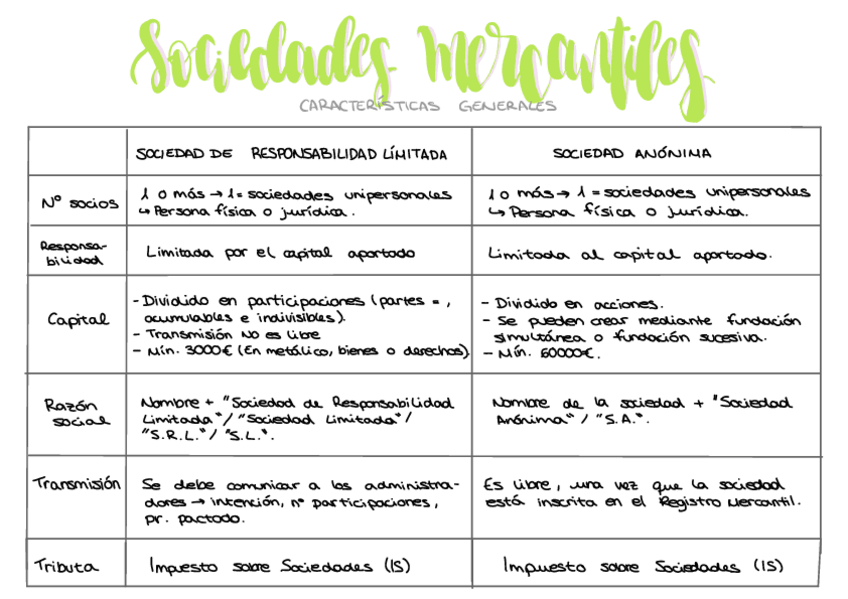 Sociedades Mercantiles
CARACTERÍSTICAS GENERALES
SOCIEDAD DE RESPONSABILIDAD LÍMITADA
SOCIEDAD ANÓNIMA
Nº socios
1 o más → 1 = sociedades unipersonales
↳ Persona física o jurídica.
1 o más → 1 = sociedades unipersonales
↳ Persona física o jurídica.
Responsa-
bilidad
Limitada por el capital aportado
Limitada al capital aportado.
Capital
- Dividido en participaciones (partes = ,
acumulables e indivisibles).
- Transmisión No es libre
- Mín. 3000€ (En metálico, bienes o derechos)
- Dividido en acciones.
- Se pueden crear mediante fundación
simultánea o fundación sucesiva.
- Mín. 60000€.
Razón
social
Nombre + "Sociedad de Responsabilidad
Limitada"/ "Sociedad Limitada"/
"S.R.L."/ "S.L.".
Nombre de la sociedad + "Sociedad
Anónima" / "S.A.".
Transmisión
Se debe comunicar a los administra-
dores → intención, nº participaciones,
pr. pactado.
Es libre, una vez que la sociedad
está inscrita en el Registro Mercantil.
Tributa
Impuesto sobre Sociedades (IS)
Impuesto sobre Sociedades (IS)